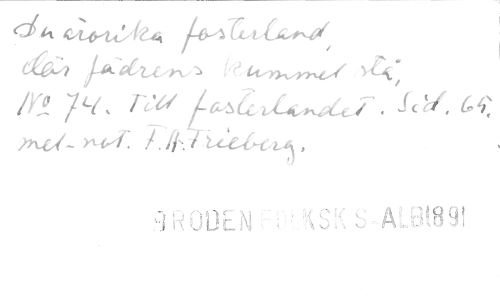 Du ärorika fosterland,
där fädrens kummel stå,
No 74. Till fosterlandet. Sid. 65.
mel-not. F.A. Frieberg.
BRODEN FOLKSK S-ALB 1891